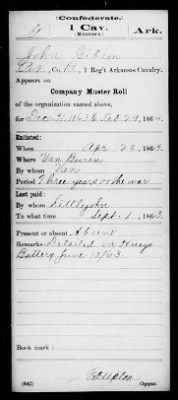 (Confederate.)
G 1 Cav. Ark.
(Monroe's.)
John Gibson
Pvt, Co. B, 1 Reg't Arkansas Cavalry.
Appears on
Company Muster Roll
of the organization named above,
for Dec 31, 1863 to Feb 29, 1864.
Enlisted:
When Apr 20, 1863.
Where Van Buren
By whom
Period Three years or the war
Last paid:
By whom Littlejohn
To what time Sept. 1, 1863.
Present or absent Absent
Remarks: Detailed in
Battery June 10/63.
Book mark:
(642) Copyist.